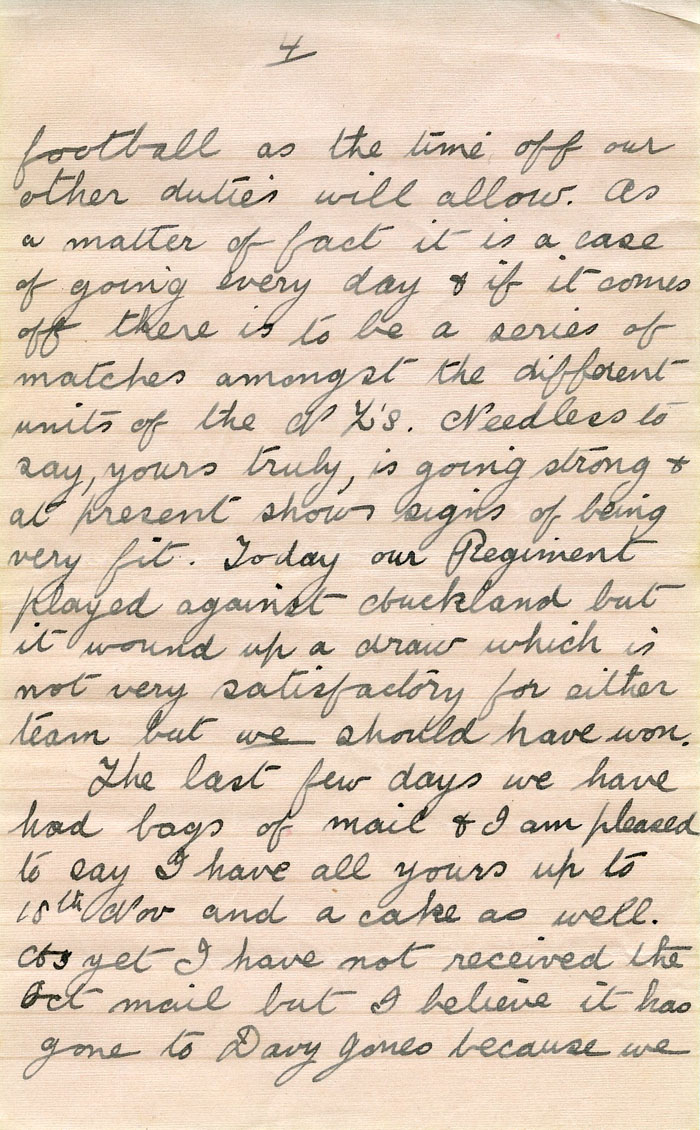 4
football as the time off our
other duties will allow. As
a matter of fact it is a case
of going every day & if it comes
off there is to be a series of
matches amongst the different
units of the N Z's. Needless to
say, yours truly, is going strong &
at present shows signs of being
very fit. Today our Regiment
played against Auckland but
it wound up a draw which is
not very satisfactory for either
team but we should have won.
The last few days we have
had bags of mail & I am pleased
to say I have all yours up to
18th Nov and a cake as well.
As yet I have not received the
Oct mail but I believe it has
gone to Davy Jones because we